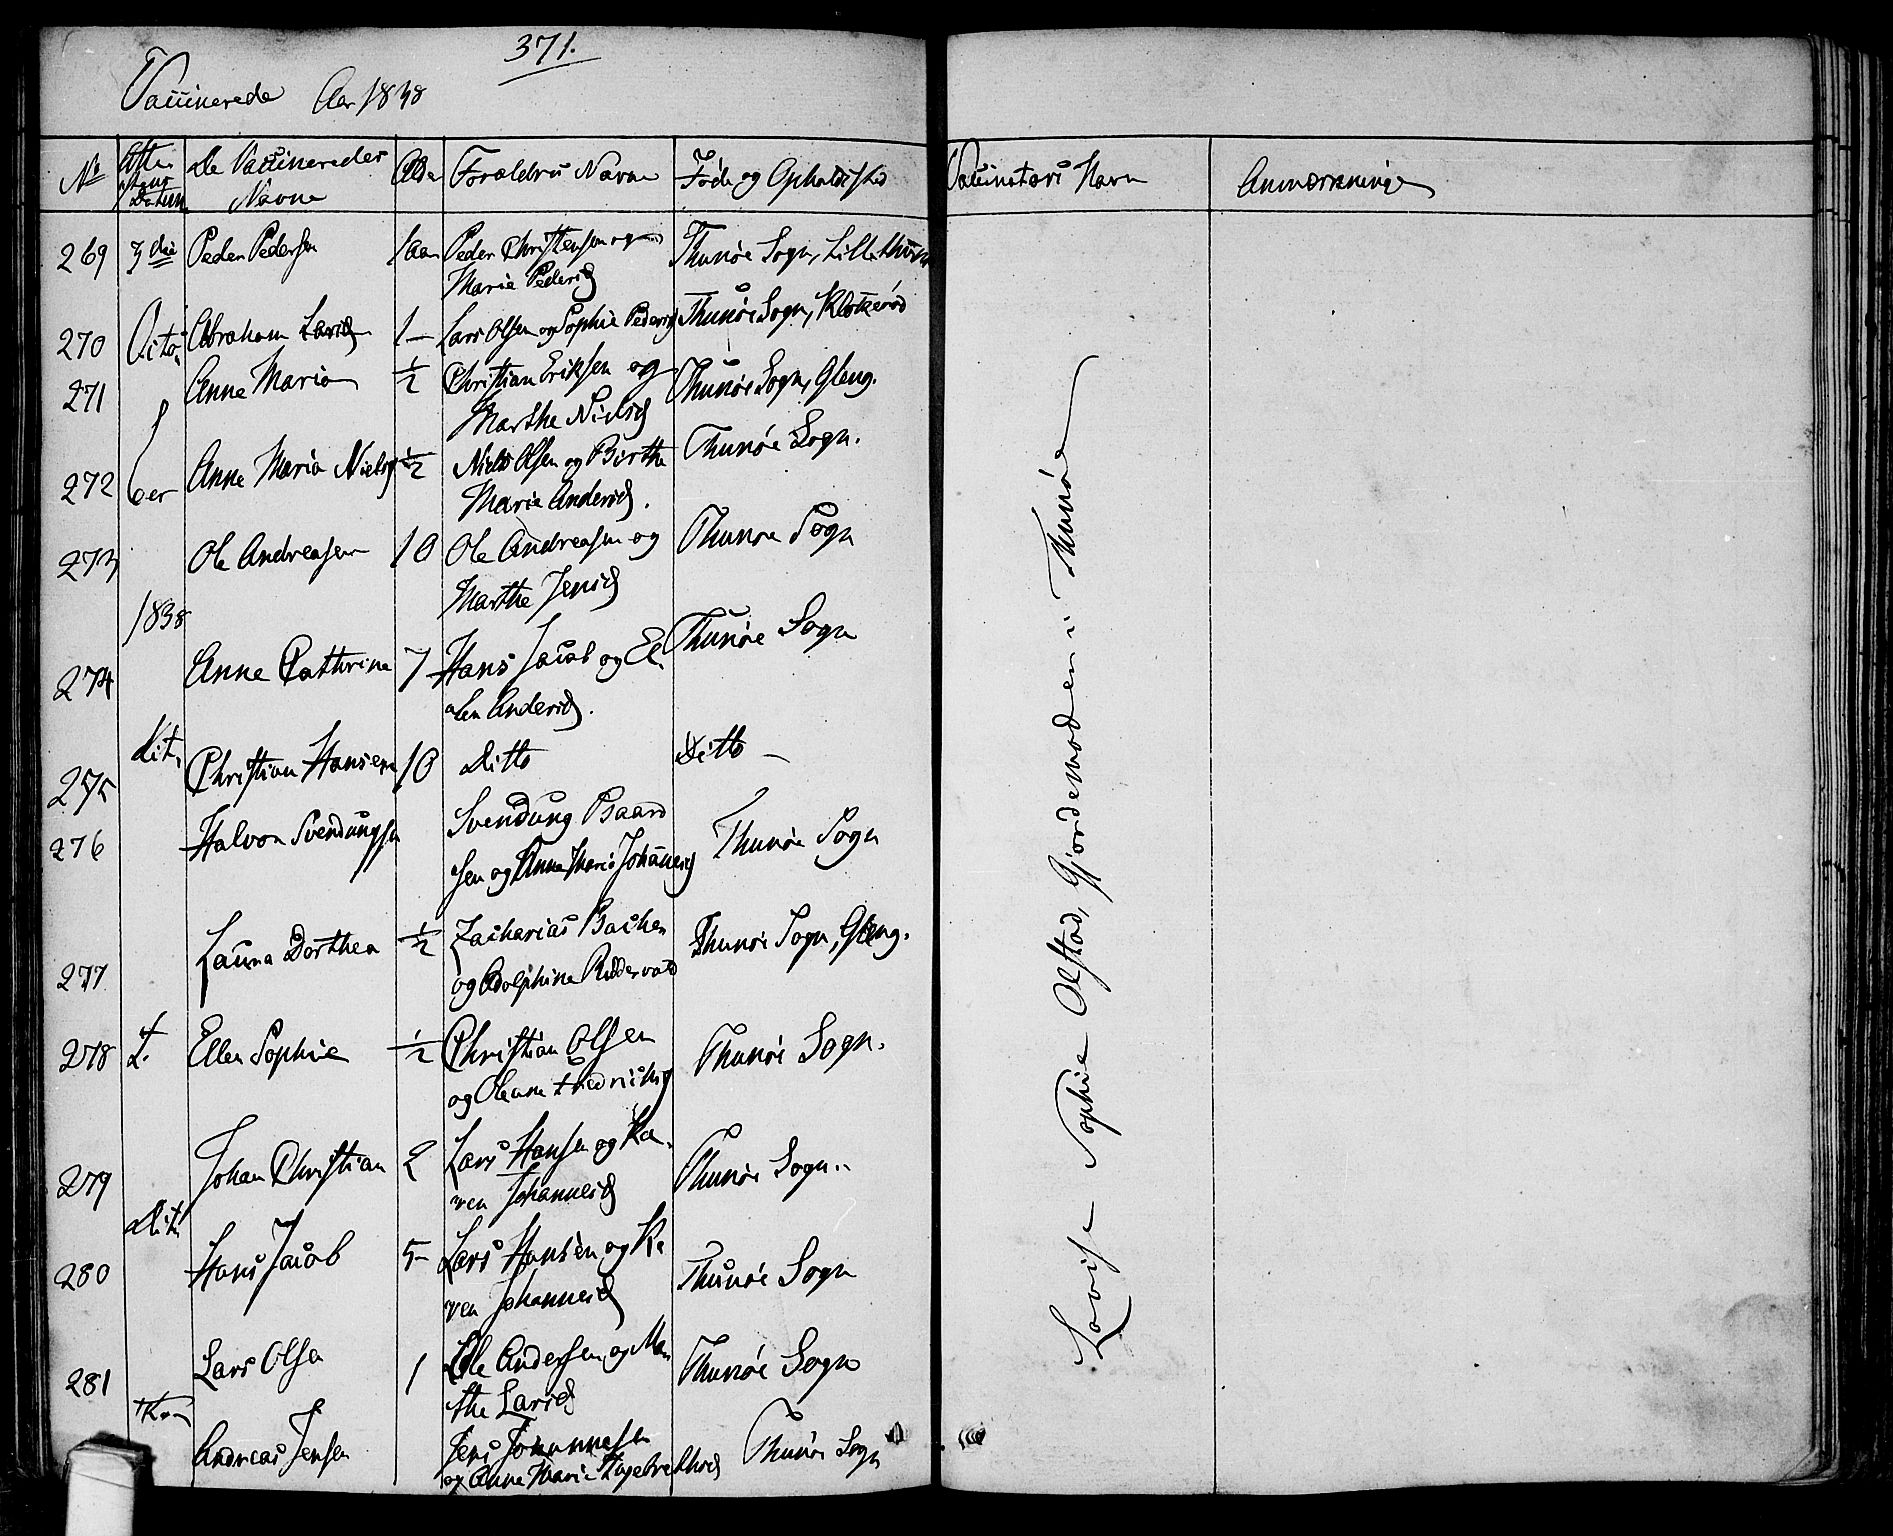 371.
Vaccinerede Aar 1838
No De Vaccineredes Navne Alder Forældres Navne Føde og Opholdssted Vaccinateurs Navn Anmærkninger
269 Peder Pedersen 1 aar Peder Christensen og Thunøe Sogn, Lille
Marie Pedersd
270 Dito Abraham Larsen 1 – Lars Olsen og Sophie Pedersd Thunøe Sogn, Klokkerød
271 Anne Maria ½ Christian Eriksen og Thunøe Sogn, Gleng.
Marthe Nielsd
272 6er Anne Maria Nielsd ½ Niels Olsen og Birthe Thunøe Sogn.
Marie Andersd.
273 Ole Andreasen 10 Ole Andreasen og Thunøe Sogn
Marthe Jensd
1838
274 Anne Cathrine 7 Hans Jacob og El Thunøe Sogn
len Andersd.
Dit.
275 Christian Hansen 10 Ditto Ditto –
276 Halvor Svendungsen Svendung Baard Thunøe Sogn
sen og Anne Marie Johannesd
277 Laura Dorthea ½ Zacharias Bachen Thunøe Sogn, Gleng.
og Adolphine Riddervold
278 Ellen Sophie ½ Christian Olsen Thunøe Sogn.
og Oleane
279 Johan Christian 2 Lars Hansen og Ka Thunøe Sogn.
ren Johannesd
Dit
280 Hans Jacob 5 – Lars Hansen og Ka Thunøe Sogn
ren Johannesd
281 Lars Olsen 1 Ole Andersen og Mar Thunøe Sogn
the Larsd
Andreas Jensen Jens Johannesen Thunøe Sogn
og Anne Marie
Lovise Sophie Olstad, Gjordemoderen i Thunøe